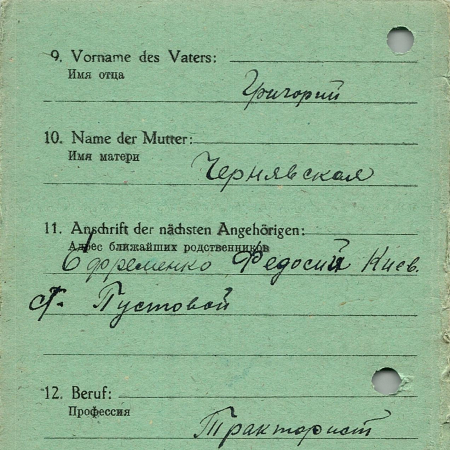 9. Vorname des Vaters:
Имя отца
Григорий
10. Name der Mutter:
Имя матери
Чернявская
11. Anschrift der nächsten Angehörigen:
Адрес ближайших родственников
Ефременко Федосий Киев.
Пустовой
12. Beruf:
Профессия
Тракторист